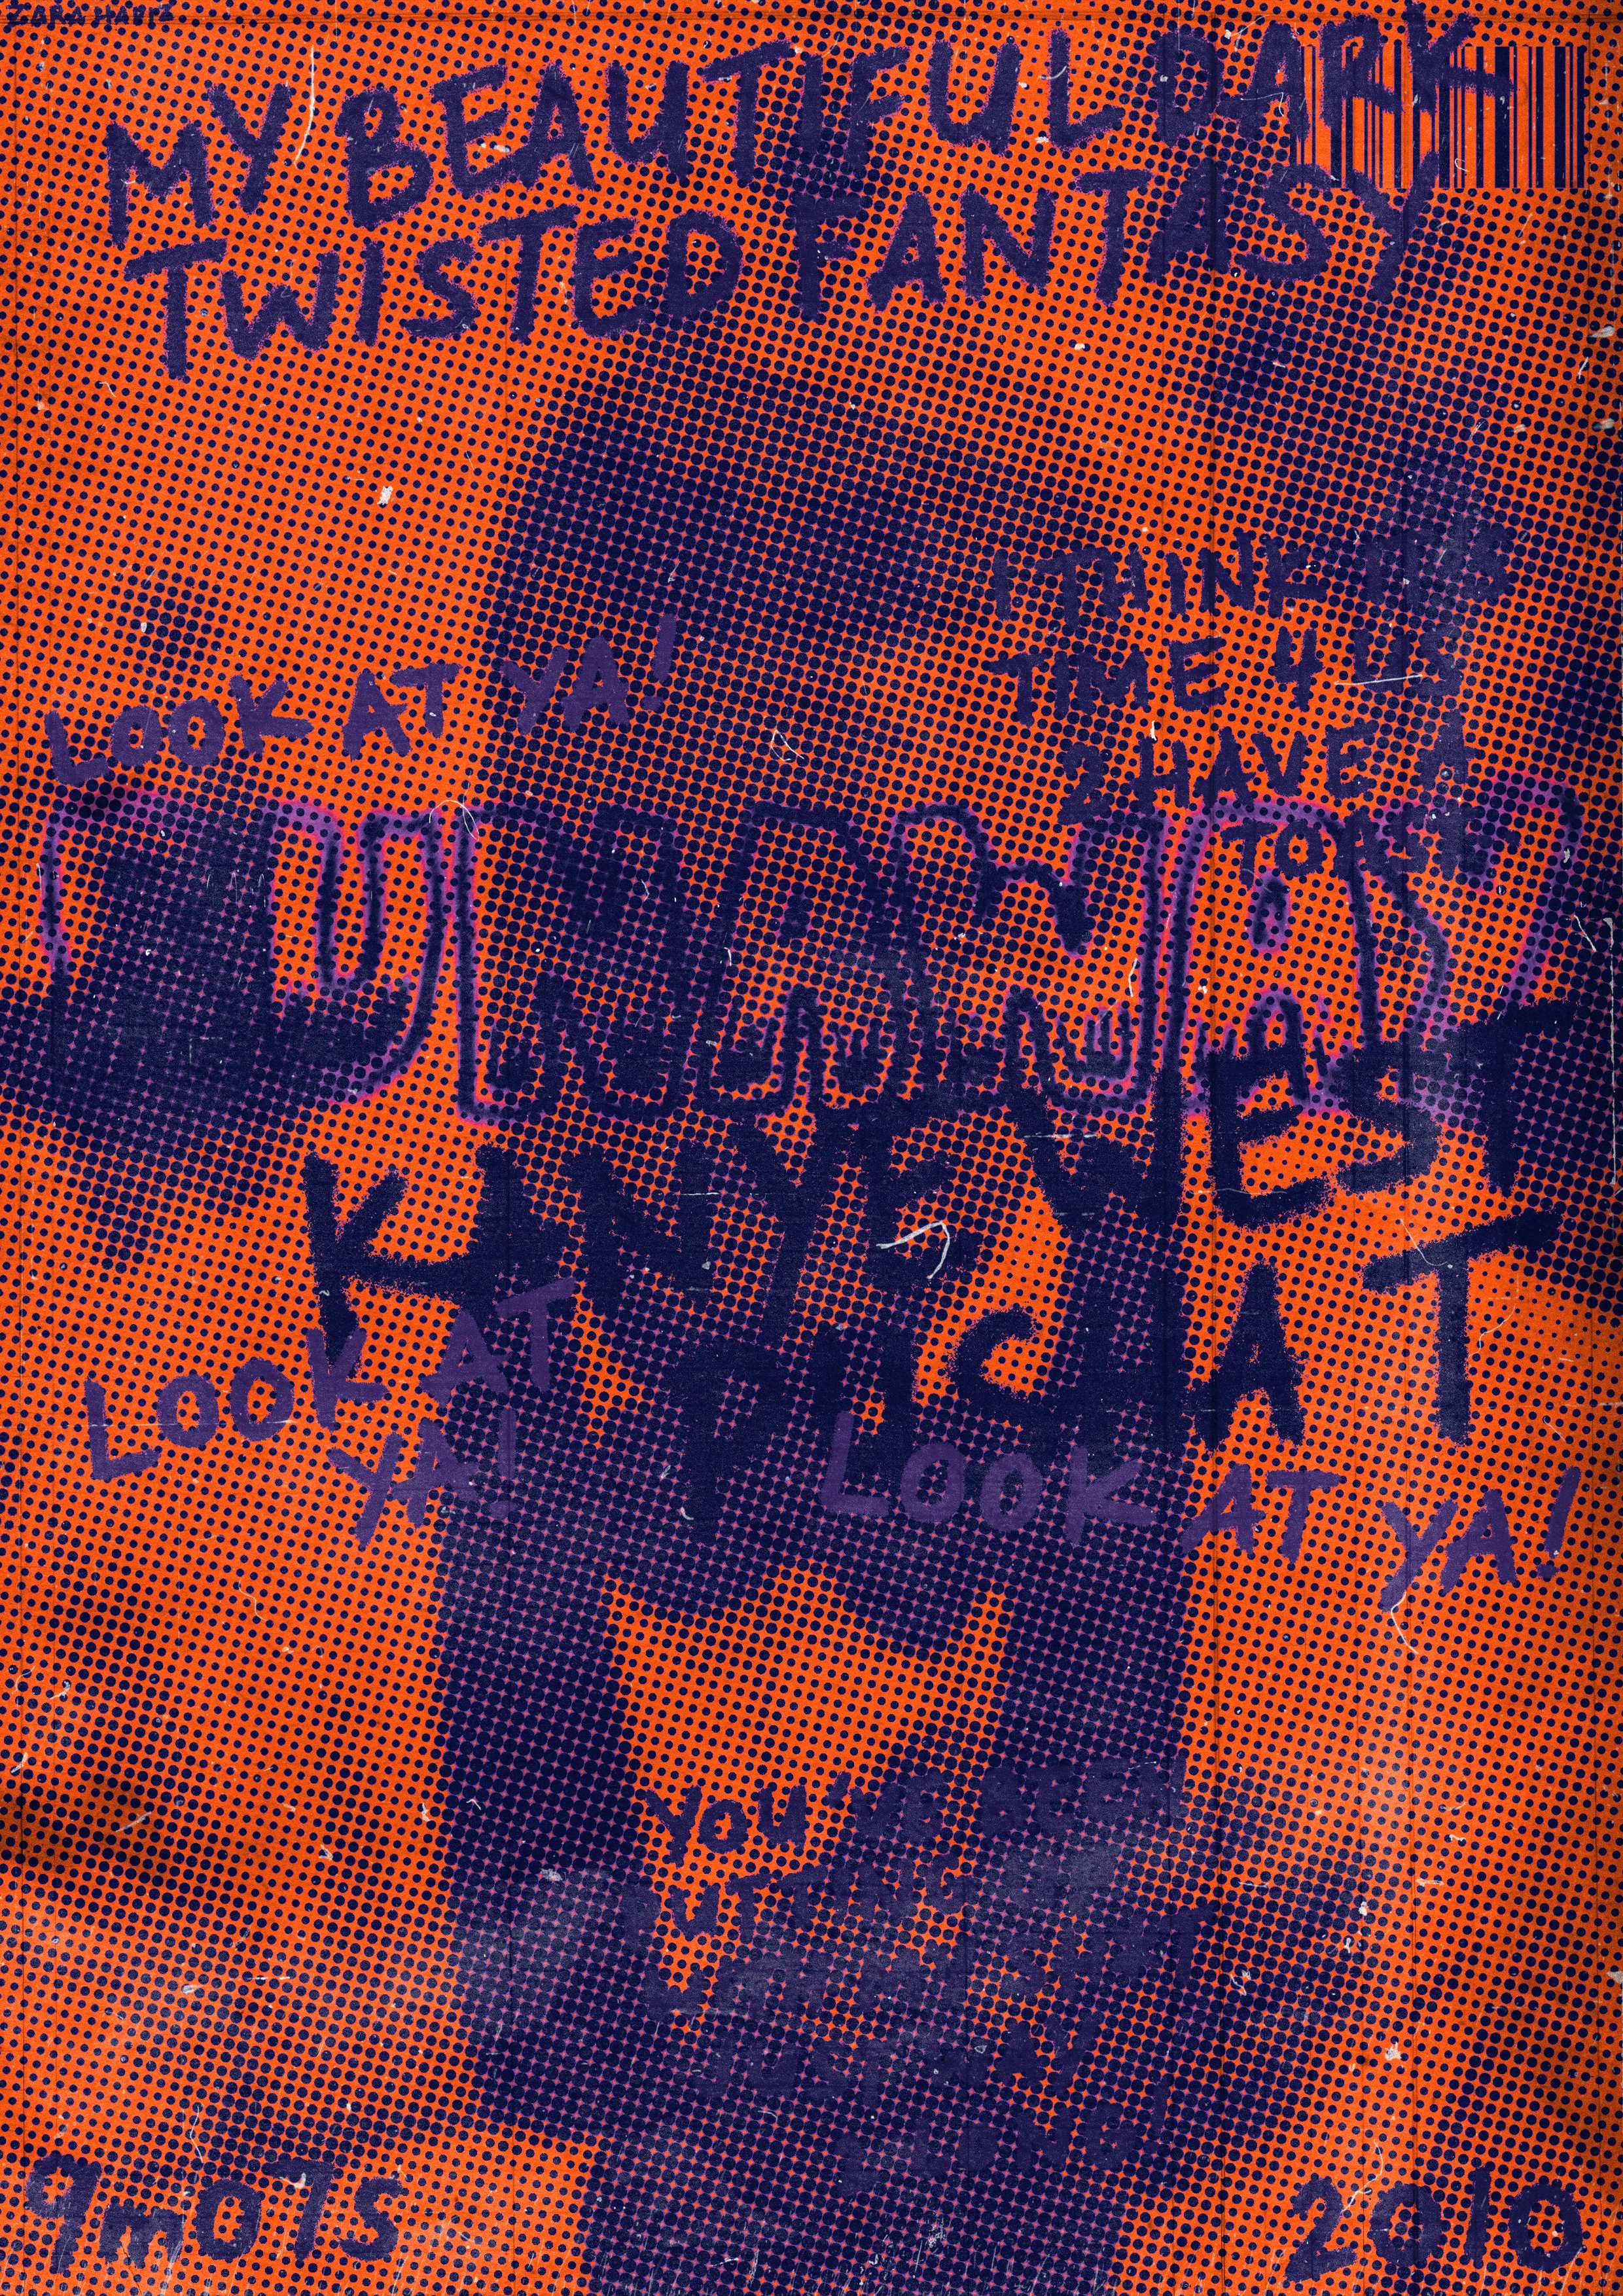 ZARA HAFIZ
MY BEAUTIFUL DARK
TWISTED FANTASY
I THINK IT'S
TIME 4 US
2 HAVE A
TOAST
LOOK AT YA!
RUNAWAY
KANYE WEST
PUSHA T
LOOK AT
YA!
LOOK AT YA!
YOU'VE BEEN
PUTTING UP
WITH MY SHIT
JUST WAY
LONG!
9m07s
2010